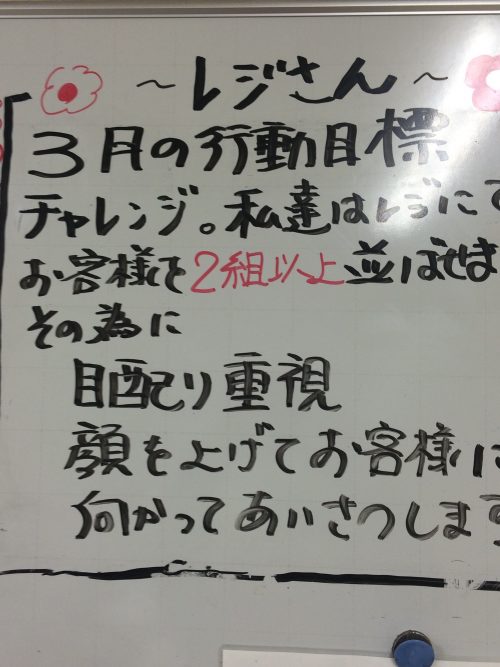 ～レジさん～
3月の行動目標
チャレンジ。私達はレジにす
お客様を2組以上並ばせば
その為に
目配り重視
顔を上げてお客様に
向かってあいさつします